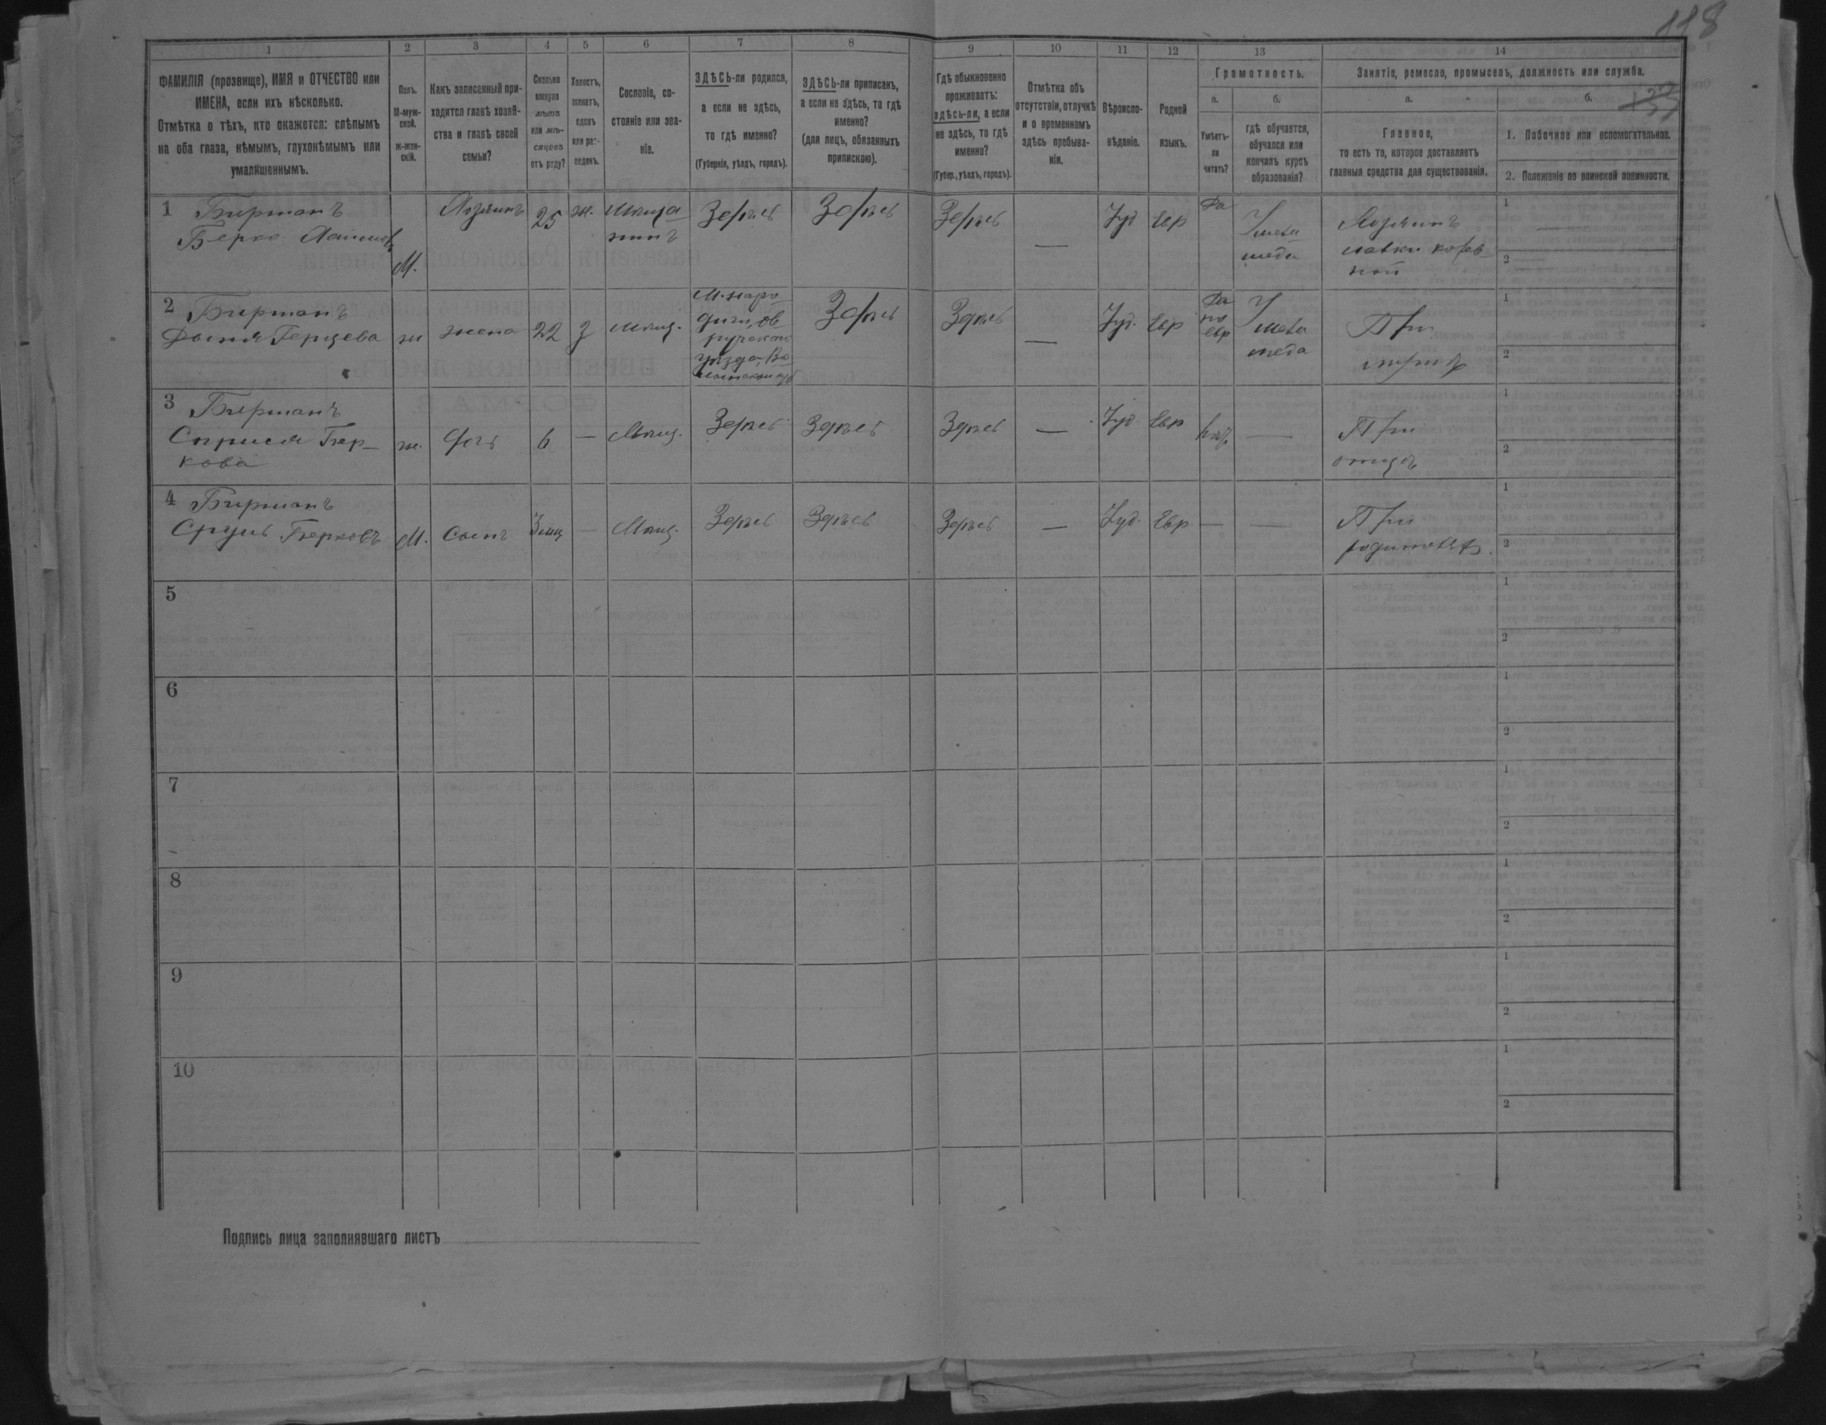 118
1
2
3
4
5
6
7
8
9
10
11
12
13
14
ФАМИЛІЯ (прозвище), ИМЯ и ОТЧЕСТВО или
ИМЕНА, если ихъ нѣсколько.
Отмѣтка о тѣхъ, кто окажется: слѣпымъ
на оба глаза, нѣмымъ, глухонѣмымъ или
умалишеннымъ.
Полъ.
М-муж-
ской.
ж-жен-
скій.
Какъ записанный при-
ходится главѣ хозяй-
ства и главѣ своей
семьи?
Сколько
минуло
лѣтъ
или мѣ-
сяцевъ
отъ роду?
Холостъ,
женатъ,
вдовъ
или раз-
веденъ.
Сословіе, со-
стояніе или зва-
ніе.
ЗДѢСЬ-ли родился,
а если не здѣсь,
то гдѣ именно?
(Губернія, уѣздъ, городъ).
ЗДѢСЬ-ли приписанъ,
а если не здѣсь, то гдѣ
именно?
(для лицъ, обязанныхъ
припискою).
Гдѣ обыкновенно
проживаетъ:
здѣсь-ли, а если
не здѣсь, то гдѣ
именно?
(Губер., уѣздъ, городъ).
Отмѣтка объ
отсутствіи, отлучкѣ
и о временномъ
здѣсь пребыва-
ніи.
Вѣроиспо-
вѣданіе.
Родной
языкъ.
Грамотность.
а.
Умѣетъ-
ли
читать?
б.
гдѣ обучается,
обучался или
кончилъ курсъ
образованія?
Занятіе, ремесло, промыселъ, должность или служба.
а.
Главное,
то есть то, которое доставляетъ
главныя средства для существованія.
б.
1. Побочное или вспомогательное.
2. Положеніе по воинской повинности.
1
Бирманъ
Берко
М.
Хозяинъ
25
ж.
Мѣща
нинъ
Здѣсь
Здѣсь
Здѣсь
—
Іуд
Евр
Да
Хозяинъ
лавки
1
2
2
Бирманъ
Герцева
ж
жена
22
з
мѣщ.
М. Наро
дичи, Ов
ручскаго
уѣзда, Во
Здѣсь
Здѣсь
—
Іуд.
Евр
Да
по
евр
При
мужѣ
1
2
3
Бирманъ
Бер-
кова
ж.
дочь
6
—
Мѣщ.
Здѣсь
Здѣсь
Здѣсь
—
Іуд.
Евр
нѣт.
—
При
отцѣ
1
2
4
Бирманъ
Сруль Берковъ
М.
сынъ
3 мѣц
—
Мѣщ.
Здѣсь
Здѣсь
Здѣсь
—
Іуд.
Евр
—
—
При
родителѣ.
1
2
5
1
2
6
1
2
7
1
2
8
1
2
9
1
2
10
1
2
Подпись лица заполнявшаго листъ